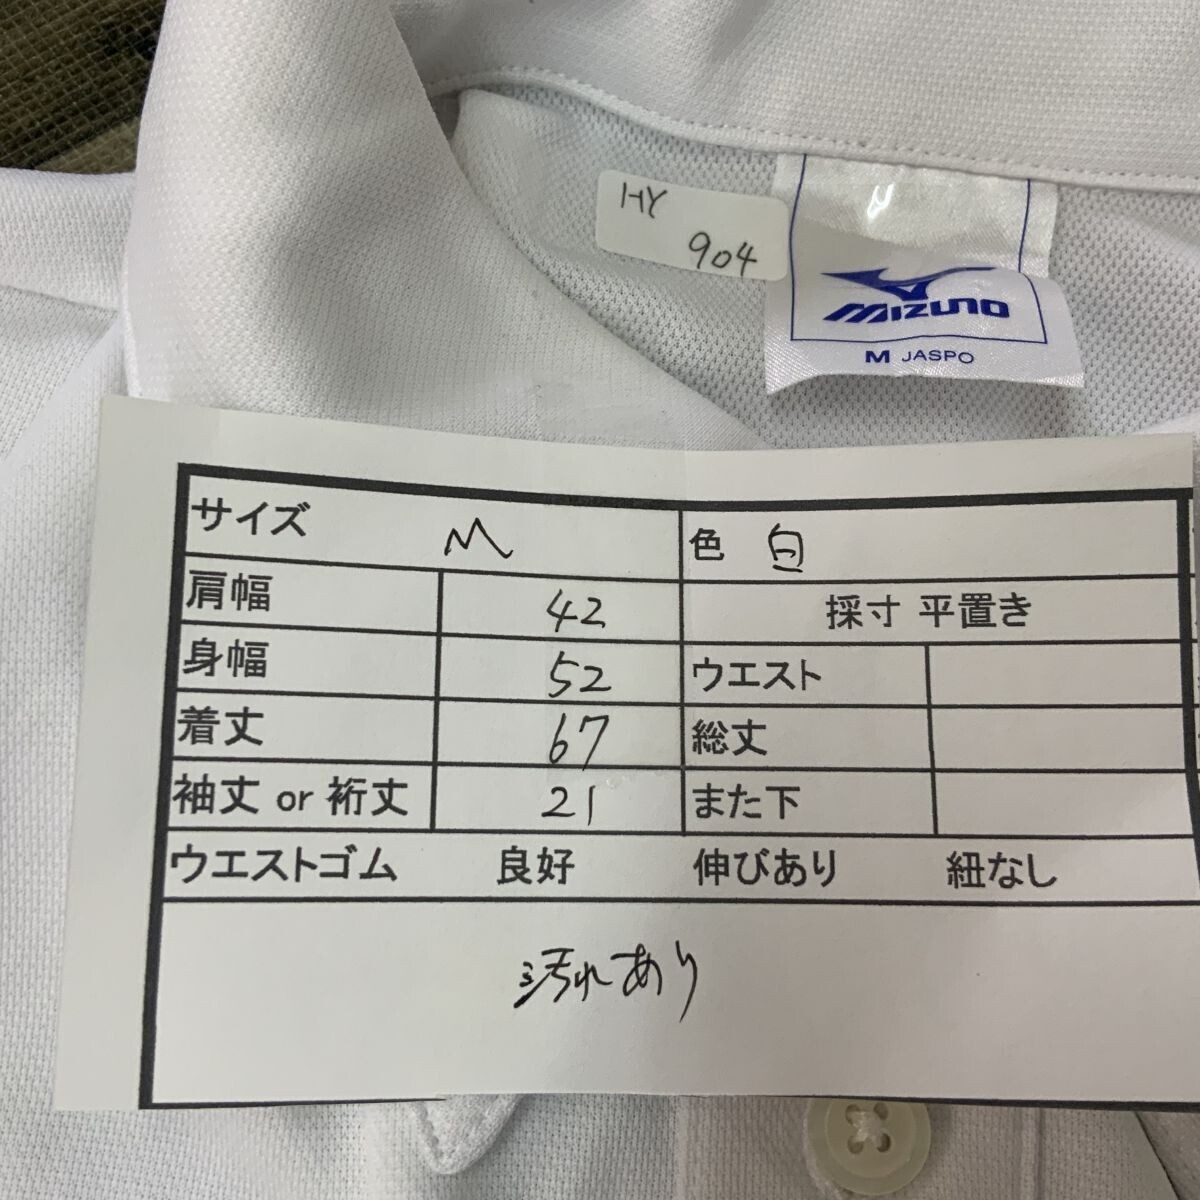 HY
904
MIZUNO
M JASPO
サイズ M 色 白
肩幅 42 採寸 平置き
身幅 52 ウエスト
着丈 67 総丈
袖丈 or 裄丈 21 また下
ウエストゴム 良好 伸びあり 紐なし
汚れあり